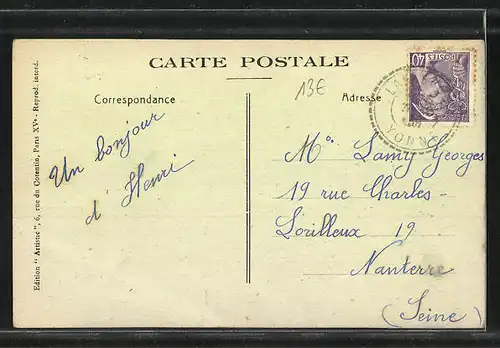 CARTE POSTALE
13€
Correspondance
Adresse
Un bonjour
d'Henri
Mº Lamy Georges
19 rue Charles-
Lorilleux 19
Nanterre
(Seine)
Edition "Artistic", 6, rue du Cotentin, Paris XVe - Reprod. interd.
POSTES
40
YONNE